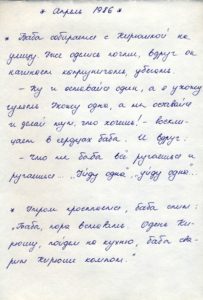 * Апрель 1986 *
* Баба собирается с Кирюшкой на
улицу. Уже оделись почти, вдруг он
начинает капризничать, убегать.
- Ну и оставайся один, а я ухожу
гулять. Ухожу одна, а ты оставайся
и делай тут, что хочешь! -
в сердцах баба. И вдруг:
- Что ты, баба всё ругаешься и
ругаешься... "Уйду одна", "уйду одна"...
* Утром проснулись, баба спит:
"Баба, пора вставать. Одень Ки-
рюшу, пойдем на кухню, баба сва-
рит Кирюше компот."